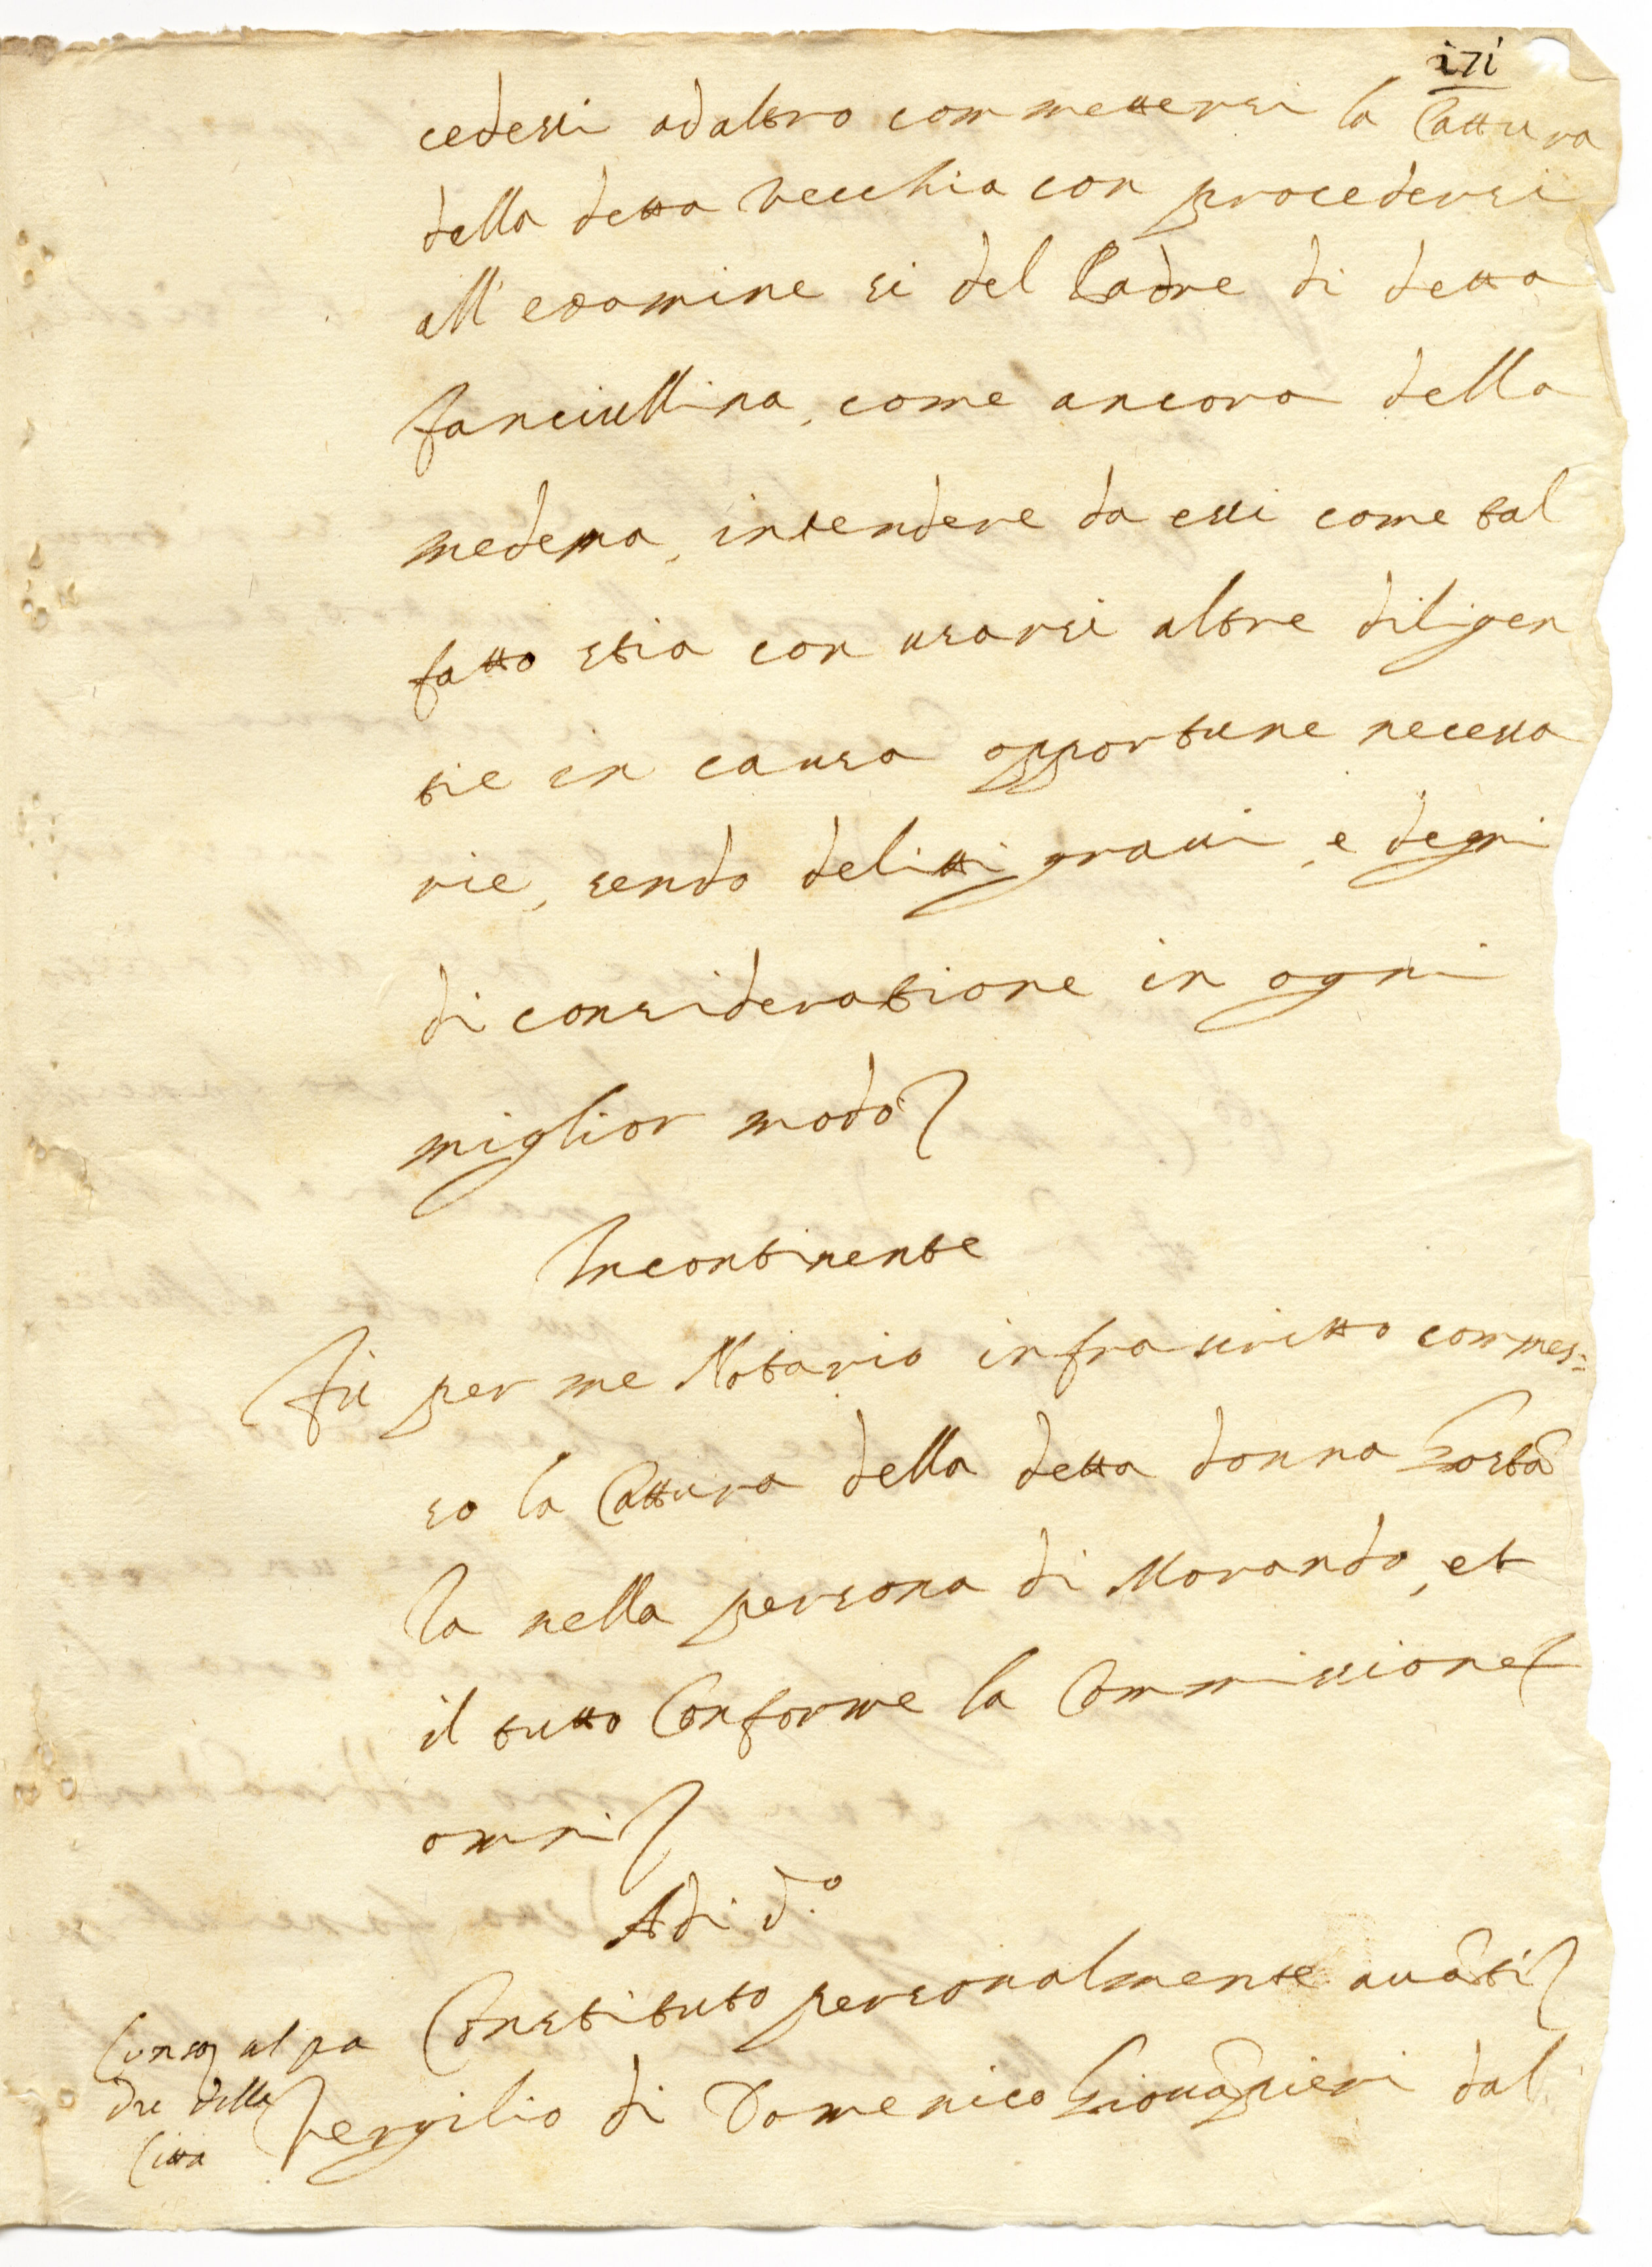 171
cedessi ad altro commettersi la Cattura
della detta Vecchia con procedersi
all' examine si del Padre di detta
fanciullina, come ancora della
medema, intendere da essi come tal
fatto stia con usarsi altre diligen
tie in causa opportune necessa
rie, sendo delitti gravi, e degni
di consideratione in ogni
miglior modo
Incontinente
Fù per me Notario infrascritto commes=
so la Cattura della detta donna
la nella persona di Morando, et
il tutto Conforme la Commissione
omni
Adi d.o
Constituto personalmente auãti
Vergilio di Domenico Giouãpieri dal
al pa
dre della
Citta